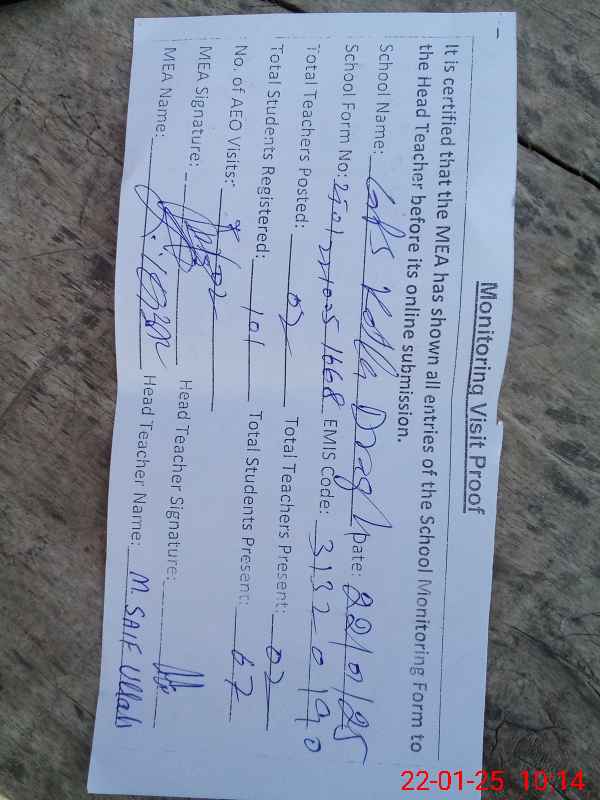 Monitoring Visit Proof
It is certified that the MEA has shown all entries of the School Monitoring Form to
the Head Teacher before its online submission.
School Name: GPS Kotla Date: 22/01/25
School Form No: EMIS Code: 31320190
Total Teachers Posted: 02 Total Teachers Present: 02
Total Students Registered: 101 Total Students Present: 67
No. of AEO Visits:
MEA Signature: Head Teacher Signature:
MEA Name: Head Teacher Name: M. SAIF Ullah
22-01-25 10:14